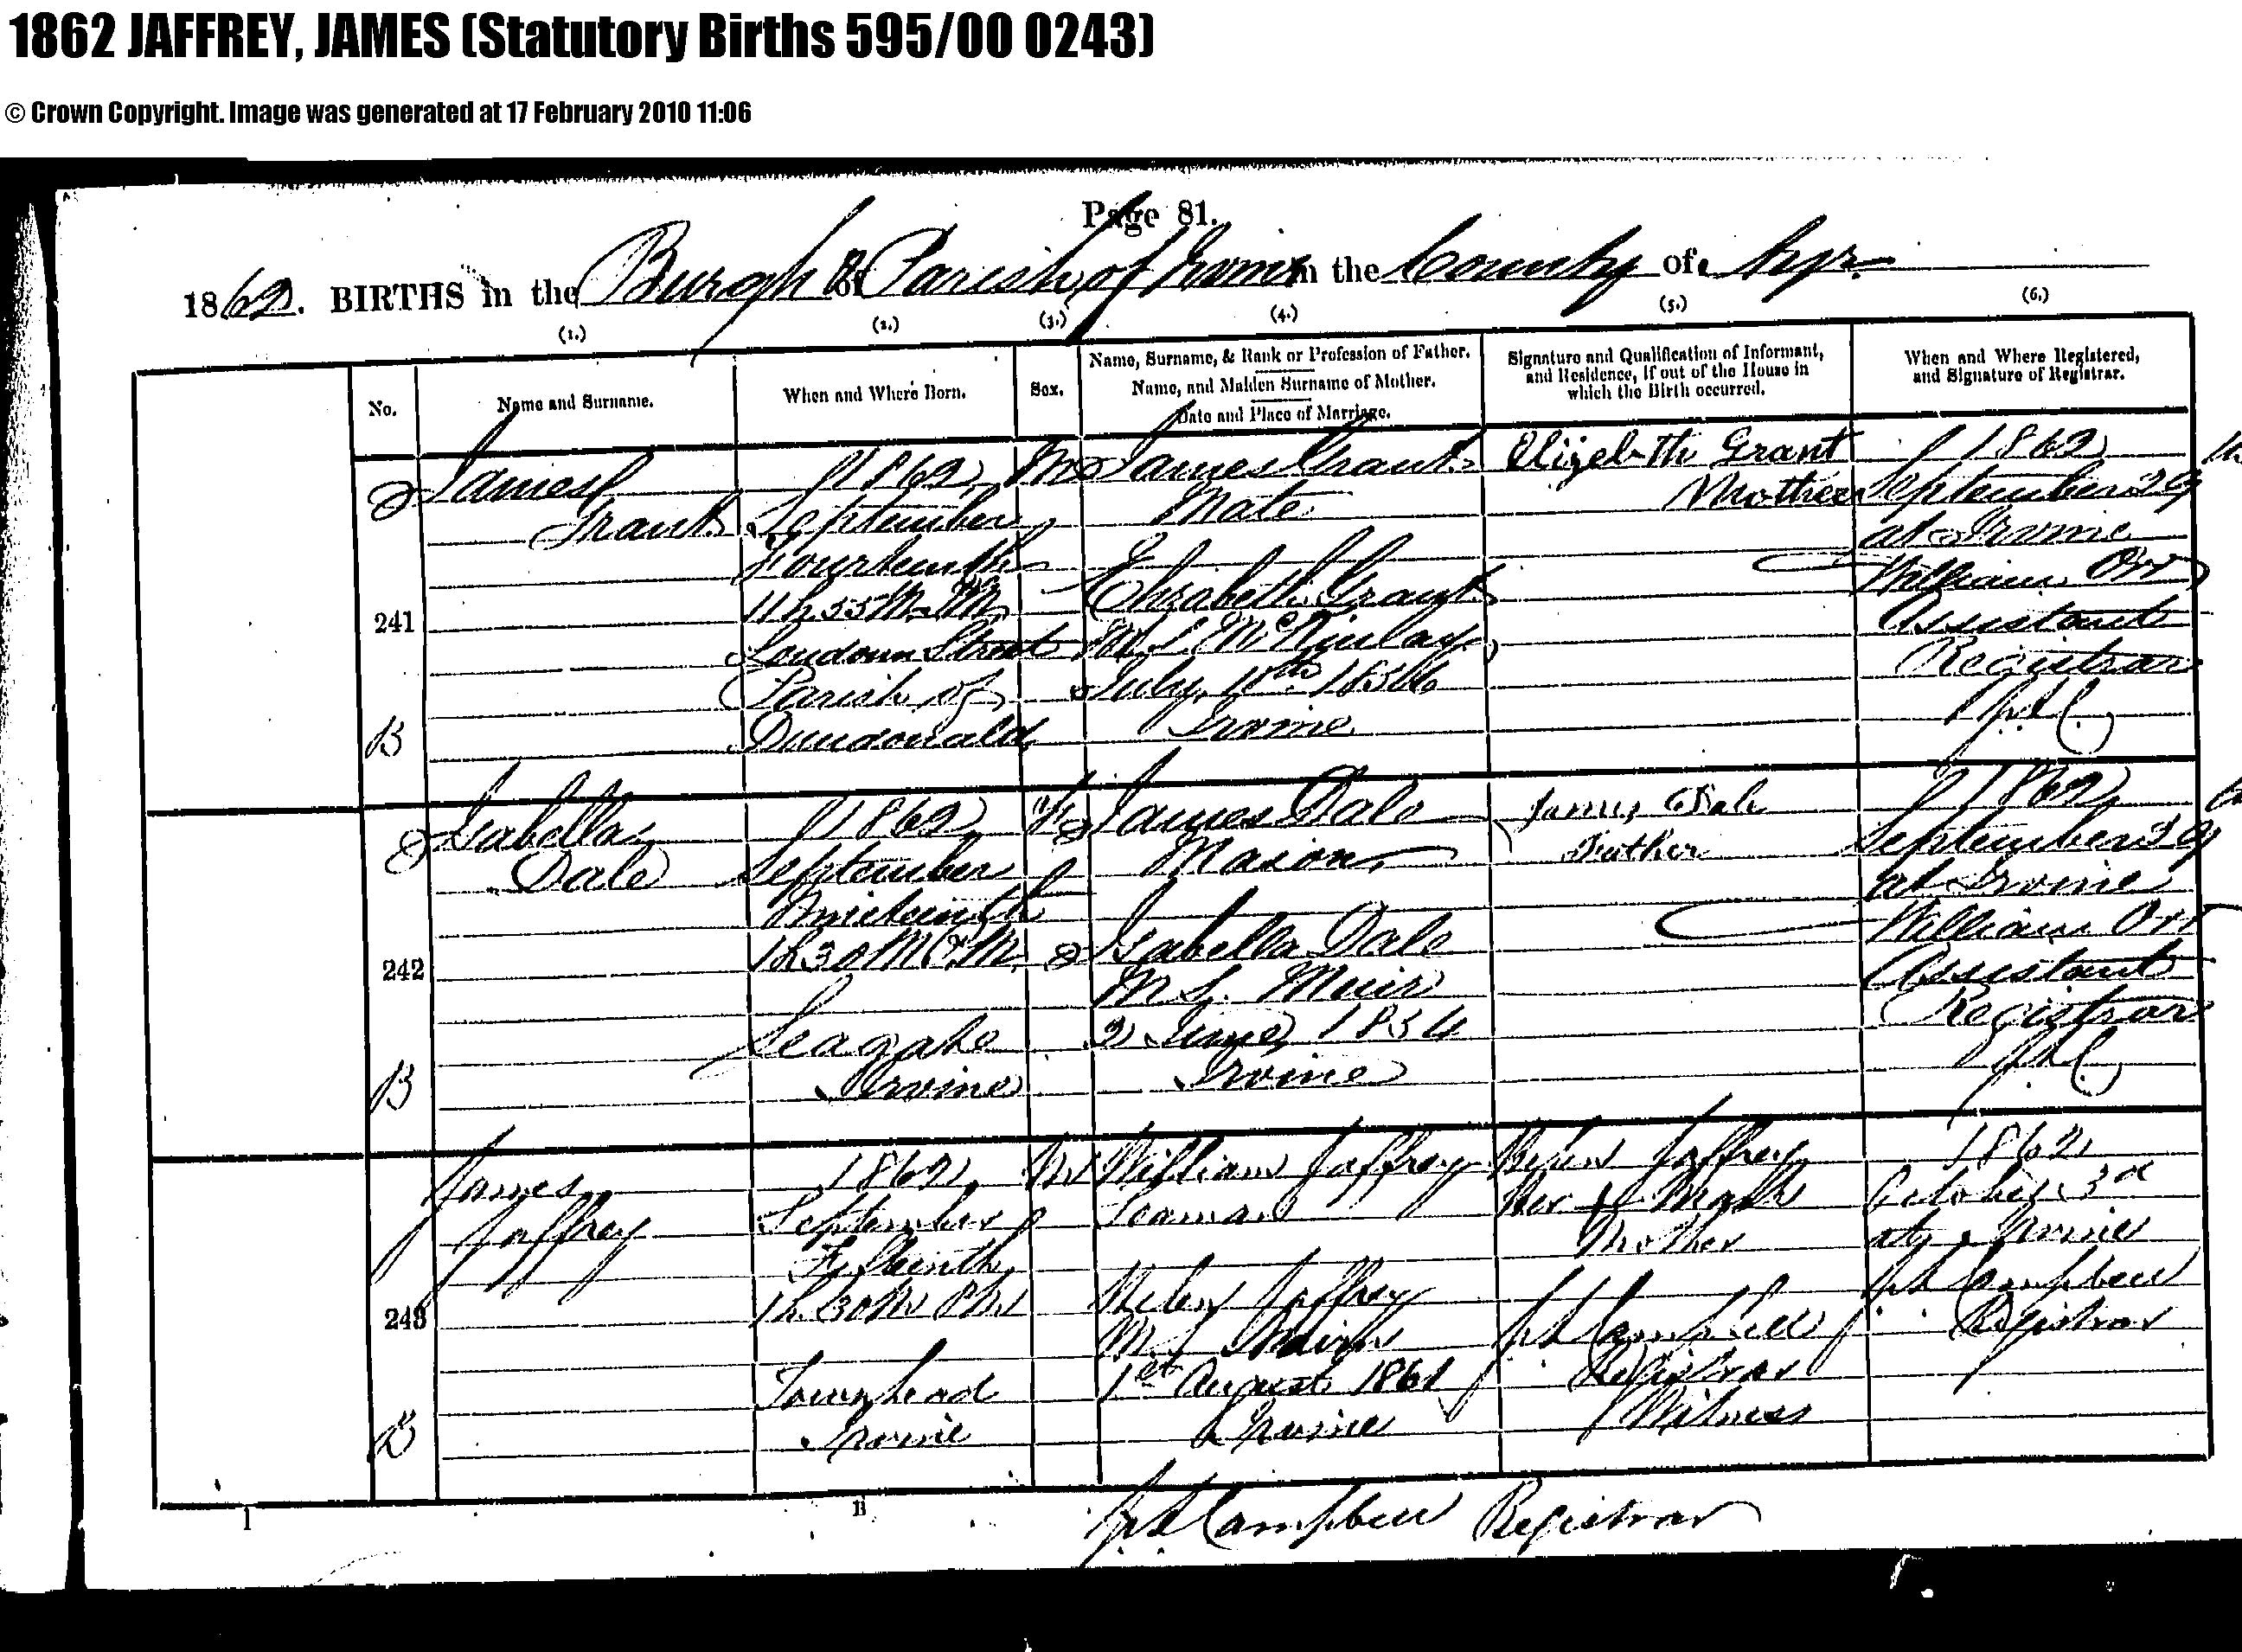 1862 JAFFREY, JAMES (Statutory Births 595/00 0243)
© Crown Copyright. Image was generated at 17 February 2010 11:06
Page 81.
1862. BIRTHS in the Burgh & Parish of Irvine in the County of Ayr.
(1.) (2.) (3.) (4.) (5.) (6.)
No.
Name and Surname.
When and Where Born.
Sex.
Name, Surname, & Rank or Profession of Father.
Name, and Maiden Surname of Mother.
Date and Place of Marriage.
Signature and Qualification of Informant,
and Residence, if out of the House in
which the Birth occurred.
When and Where Registered,
and Signature of Registrar.
241
B
James
Grant
1862
September
Fourteenth
11 h 55 M M
Loudoun Street
Parish of
Dundonald
M
James Grant
Mate
Elizabeth Grant
M.S. McKinlay
July 1856
Irvine
Elizabeth Grant
Mother
1862
September 29
at Irvine
William Orr
Assistant
Registrar
242
B
Isabella
Dale
1862
September
Nineteenth
1 h 30 M M
Seagate
Irvine
F
James Dale
Mason
Isabella Dale
M.S. Muir
2 June 1854
Irvine
James Dale
Father
1862
September 29
at Irvine
William Orr
Assistant
Registrar
243
B
James
Jaffrey
1862
September
Fifteenth
1 h. 30 M PM
Townhead
Irvine
M
William Jaffrey
Seaman
Helen Jaffrey
M.S.
1st August 1861
Irvine
Helen Jaffrey
Her X Mark
Mother
Campbell
Registrar
Witness
1862
October 3d
at Irvine
Campbell
Registrar
1 B
Campbell Registrar